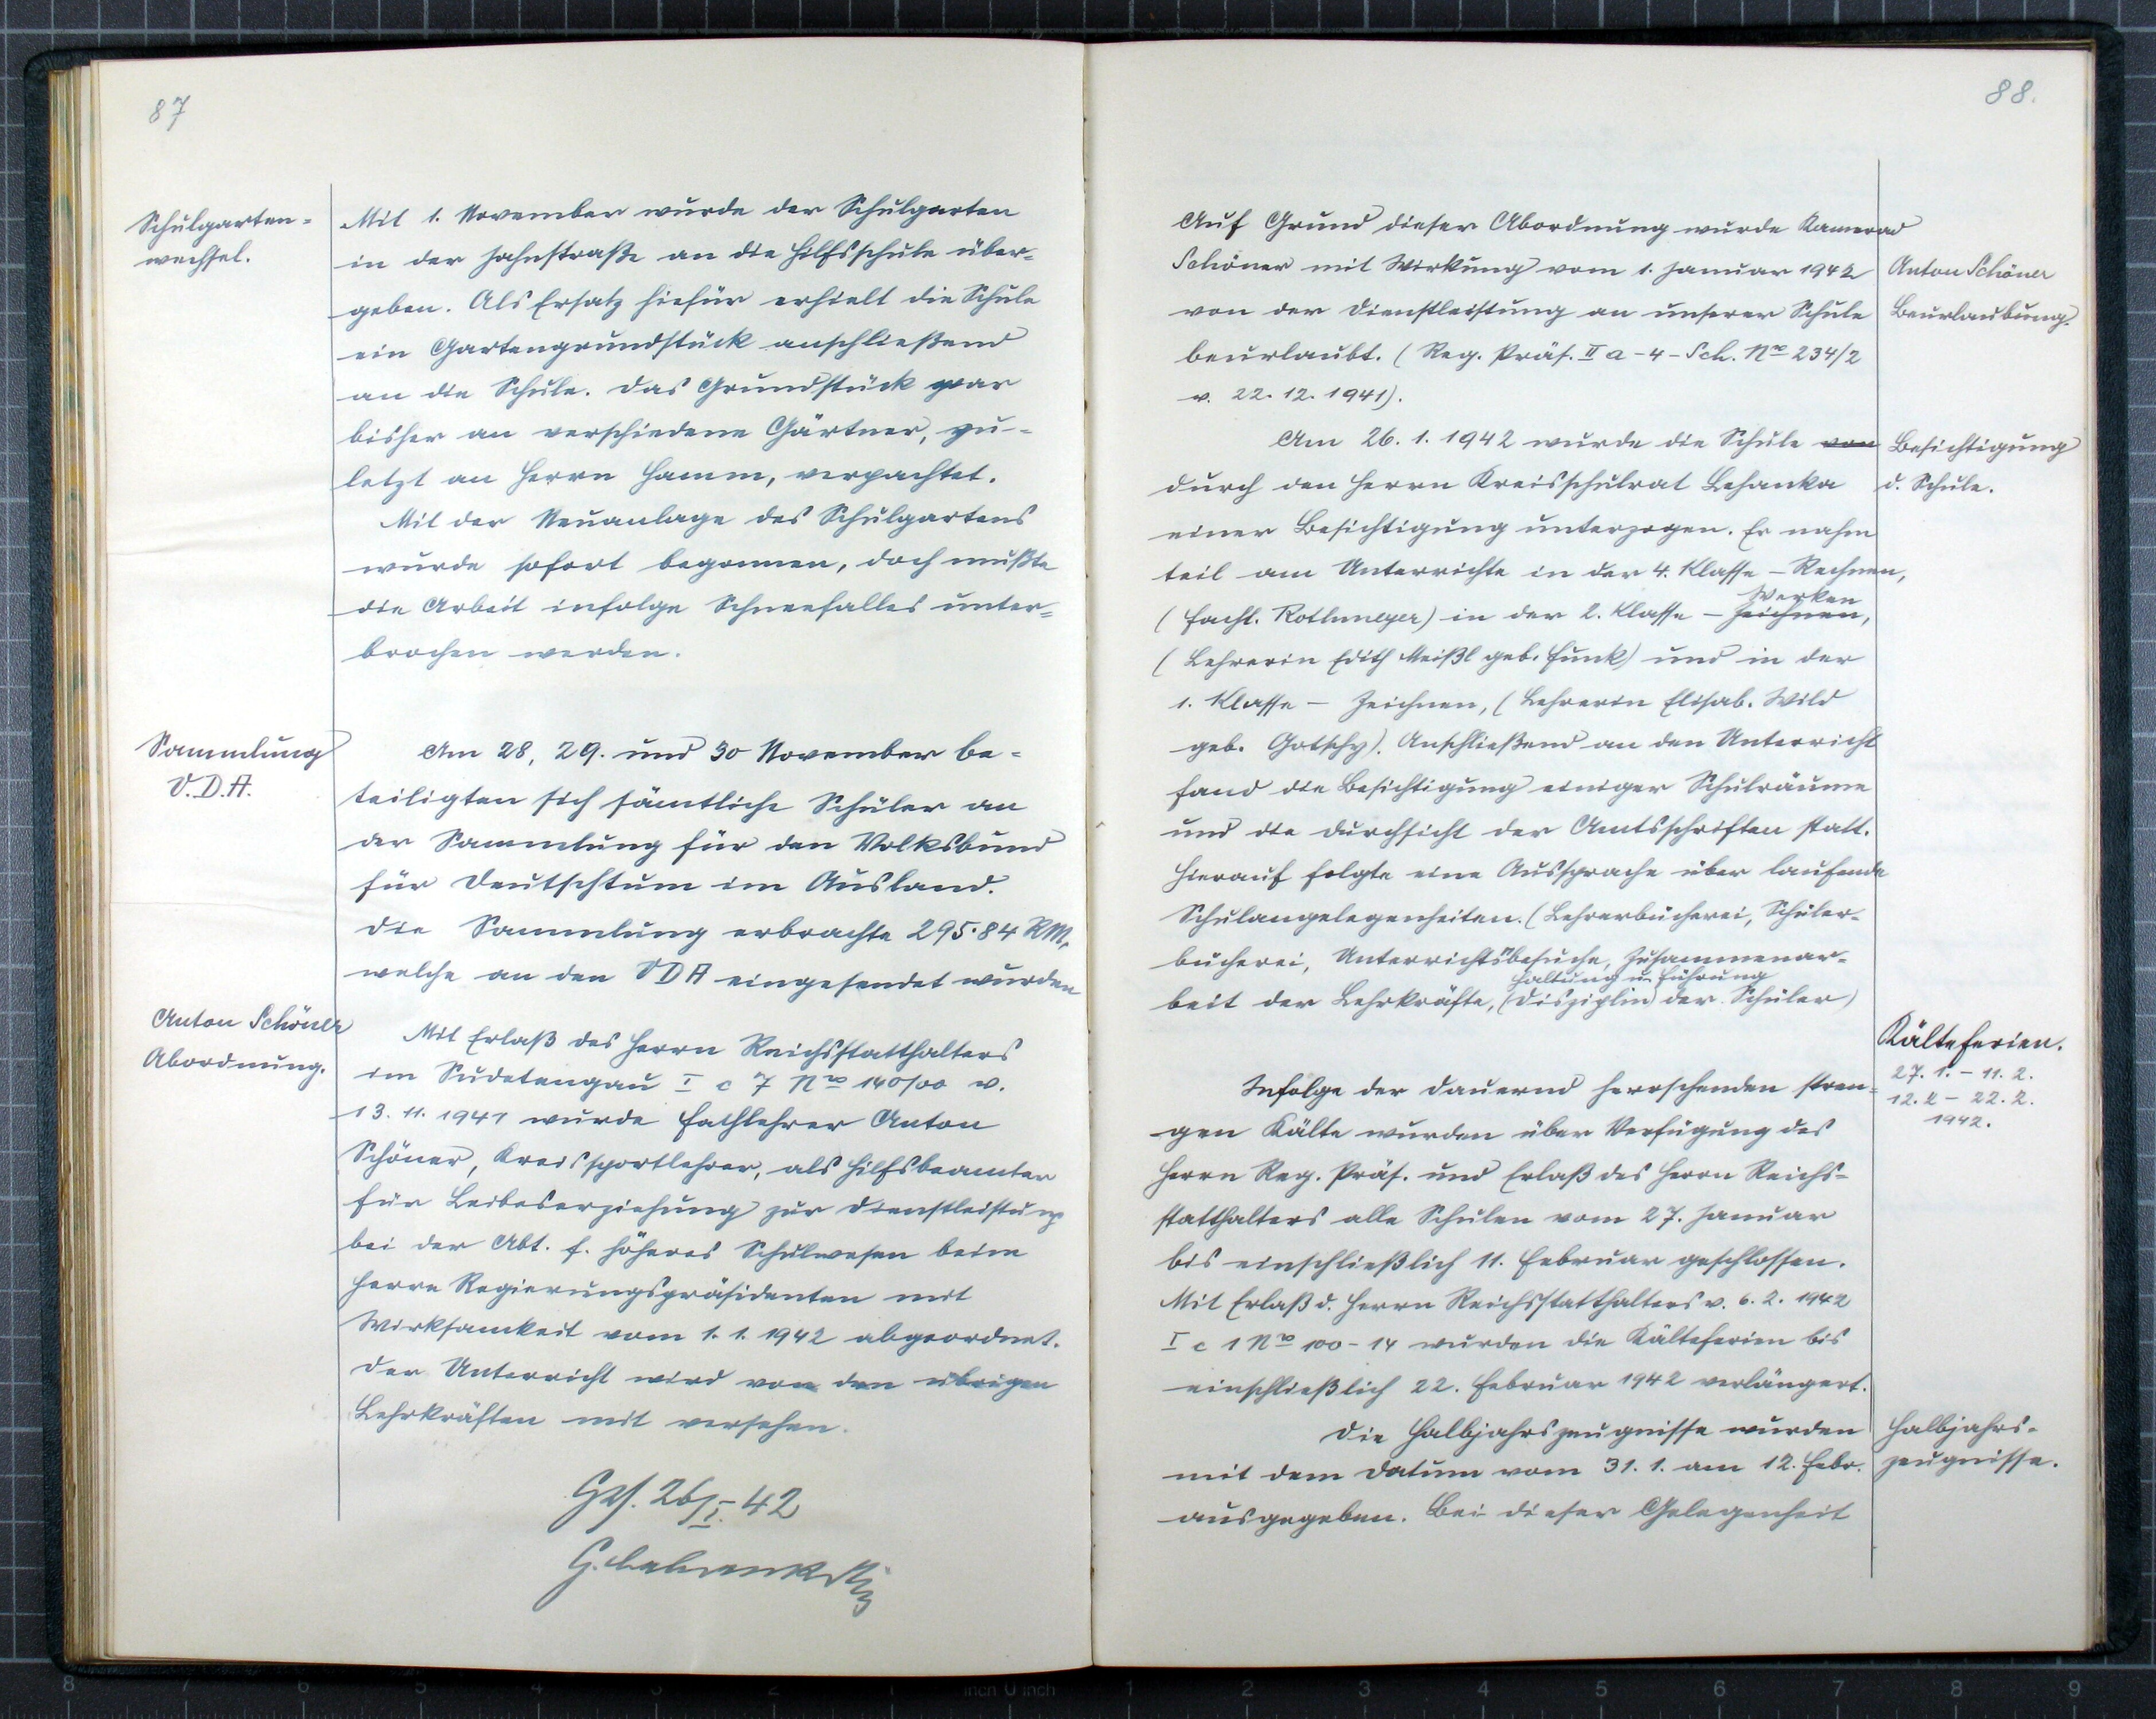 87
Schulgarten=
wechsel.
Mit 1. November wurde der Schulgarten
in der Jahnstraße an die Hilfsschule über=
geben. Als Ersatz hiefür erhielt die Schule
ein Gartengrundstück anschließend
an die Schule. Das Grundstück war
bisher an verschiedene Gärtner, zu-
letzt an Herrn Hamm, verpachtet.
Mit der Neuanlage des Schulgartens
wurde sofort begonnen, doch mußte
die Arbeit infolge Schneefalles unter=
brochen werden.
Sammlung
V.D.A.
Am 28, 29. und 30 November be=
teiligten sich sämtliche Schüler an
der Sammlung für den Volksbund
für Deutschtum im Ausland.
Die Sammlung erbrachte 295·84 RM,
welche an den VDA eingesendet wurden
Anton Schöner
Abordnung.
Mit Erlaß des Herrn Reichsstatthalters
im Sudetengau I c 7 No 140/00 v.
13. 11. 1941 wurde Fachlehrer Anton
Schöner, Kreissportlehrer, als Hilfsbeamter
für Leibeserziehung zur Dienstleistung
bei der Abt. f. höheres Schulwesen beim
Herrn Regierungspräsidenten mit
Wirksamkeit vom 1. 1. 1942 abgeordnet.
Der Unterricht wird von den übrigen
Lehrkräften mit versehen.
Ges. 26/I. 42
88.
Auf Grund dieser Abordnung wurde Kamerad
Schöner mit Wirkung vom 1. Januar 1942
von der Dienstleistung an unserer Schule
beurlaubt. (Reg. Präs. II a - 4 - Sch. No 234/2
v. 22. 12. 1941).
Anton Schöner
Beurlaubung.
Am 26. 1. 1942 wurde die Schule von
durch den Herrn Kreisschulrat Lehanka
einer Besichtigung unterzogen. Er nahm
teil am Unterrichte in der 4. Klasse - Rechnen,
Werken
(Fachl. Rothmeyer) in der 2. Klasse - Zeichnen,
(Lehrerin Edith Meißl geb. Funk) und in der
1. Klasse - Zeichnen, (Lehrerin Elisab. Wild
geb. Gotschy). Anschließend an den Unterricht
fand die Besichtigung einiger Schulräume
und die Durchsicht der Amtsschriften statt.
Hierauf folgte eine Aussprache über laufende
Schulangelegenheiten. (Lehrerbücherei, Schüler-
bücherei, Unterrichtsbesuche, Zusammenar-
Haltung u. Führung
beit der Lehrkräfte, (Disziplin) der Schüler)
Besichtigung
d. Schule.
Kälteferien.
27. 1. - 11. 2.
12. 2 - 22. 2.
1942.
Infolge der dauernd herrschenden stren=
gen Kälte wurden über Verfügung des
Herrn Reg. Präs. und Erlaß des Herrn Reichs-
statthalters alle Schulen vom 27. Januar
bis einschließlich 11. Februar geschlossen.
Mit Erlaß d. Herrn Reichsstatthalters v. 6. 2. 1942
I c 1 No 100 - 14 wurden die Kälteferien bis
einschließlich 22. Februar 1942 verlängert.
Die Halbjahrszeugnisse wurden
mit dem Datum vom 31. 1. am 12. Febr.
ausgegeben. Bei dieser Gelegenheit
Halbjahrs-
zeugnisse.
8 7 6 5 4 3 2 1 inch 0 inch 1 2 3 4 5 6 7 8 9